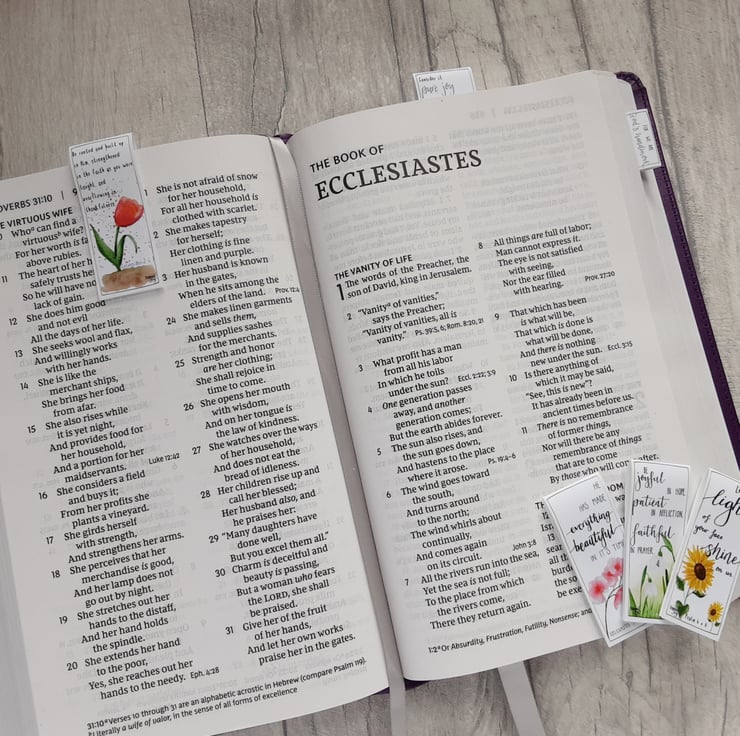 Be rooted and built up
in Him, strengthened
in the faith as you were
taught, and
overflowing in
thankfulness.
Consider it
pure joy
OVERBS 31:10 | 9
E VIRTUOUS WIFE
10 Who a can find a
virtuous b wife?
For her worth is fa
above rubies.
11 The heart of her h
safely trusts he
So he will have no
lack of gain.
12 She does him good
and not evil
All the days of her life.
13 She seeks wool and flax,
And willingly works
with her hands.
14 She is like the
merchant ships,
She brings her food
from afar.
15 She also rises while
it is yet night,
And provides food for
her household,
And a portion for her
maidservants. Luke 12:42
16 She considers a field
and buys it;
From her profits she
plants a vineyard.
17 She girds herself
with strength,
And strengthens her arms.
18 She perceives that her
merchandise is good,
And her lamp does not
go out by night.
19 She stretches out her
hands to the distaff,
And her hand holds
the spindle.
20 She extends her hand
to the poor,
Yes, she reaches out her
hands to the needy. Eph. 4:28
1 She is not afraid of snow
for her household,
For all her household is
clothed with scarlet.
2 She makes tapestry
for herself;
Her clothing is fine
linen and purple.
3 Her husband is known
in the gates,
When he sits among the
elders of the land. Prov. 12:4
24 She makes linen garments
and sells them,
And supplies sashes
for the merchants.
25 Strength and honor
are her clothing;
She shall rejoice in
time to come.
26 She opens her mouth
with wisdom,
And on her tongue is
the law of kindness.
27 She watches over the ways
of her household,
And does not eat the
bread of idleness.
28 Her children rise up and
call her blessed;
Her husband also, and
he praises her:
29 "Many daughters have
done well,
But you excel them all."
30 Charm is deceitful and
beauty is passing,
But a woman who fears
the LORD, she shall
be praised.
31 Give her of the fruit
of her hands,
And let her own works
praise her in the gates.
31:10 a Verses 10 through 31 are an alphabetic acrostic in Hebrew (compare Psalm 119).
b Literally a wife of valor, in the sense of all forms of excellence
THE BOOK OF
ECCLESIASTES
THE VANITY OF LIFE
1 The words of the Preacher, the
son of David, king in Jerusalem.
2 "Vanity a of vanities,"
says the Preacher;
"Vanity of vanities, all is
vanity." Ps. 39:5, 6; Rom. 8:20, 21
3 What profit has a man
from all his labor
In which he toils
under the sun? Eccl. 2:22; 3:9
4 One generation passes
away, and another
generation comes;
But the earth abides forever.
5 The sun also rises, and
the sun goes down,
And hastens to the place
where it arose. Ps. 19:4–6
6 The wind goes toward
the south,
And turns around
to the north;
The wind whirls about
continually,
And comes again
on its circuit. John 3:8
7 All the rivers run into the sea,
Yet the sea is not full;
To the place from which
the rivers come,
There they return again.
8 All things are full of labor;
Man cannot express it.
The eye is not satisfied
with seeing,
Nor the ear filled
with hearing. Prov. 27:20
9 That which has been
is what will be,
That which is done is
what will be done,
And there is nothing
new under the sun. Eccl. 3:15
10 Is there anything of
which it may be said,
"See, this is new"?
It has already been in
ancient times before us.
11 There is no remembrance
of former things,
Nor will there be any
remembrance of things
that are to come
By those who will
1:2 a Or Absurdity, Frustration, Futility, Nonsense; and
HE
HAS MADE
everything
beautiful
IN ITS TIME
BE
joyful
IN HOPE
patient
IN AFFLICTION
faithful
IN PRAYER
light
of your face
shine
on us
Psalm 4 v 6